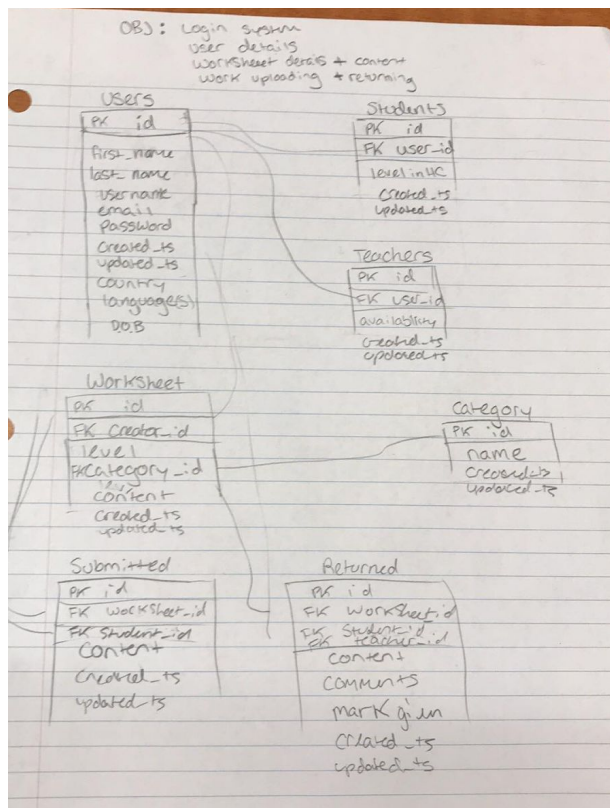 OBJ: Login system
user details
worksheet details + content
work uploading + returning
Users
PK id
first_name
last_name
username
email
password
created_ts
updated_ts
country
language(s)
D.O.B
Students
PK id
FK user_id
created_ts
updated_ts
Teachers
PK id
FK user_id
availability
created_ts
updated_ts
Worksheet
PK id
FK Creator_id
level
FK Category_id
content
created_ts
updated_ts
Category
PK id
name
created_ts
updated_ts
Submitted
PK id
FK Worksheet_id
FK Student_id
content
Created_ts
updated_ts
Returned
PK id
FK Worksheet_id
FK Student_id
FK teacher_id
content
comments
mark given
created_ts
updated_ts